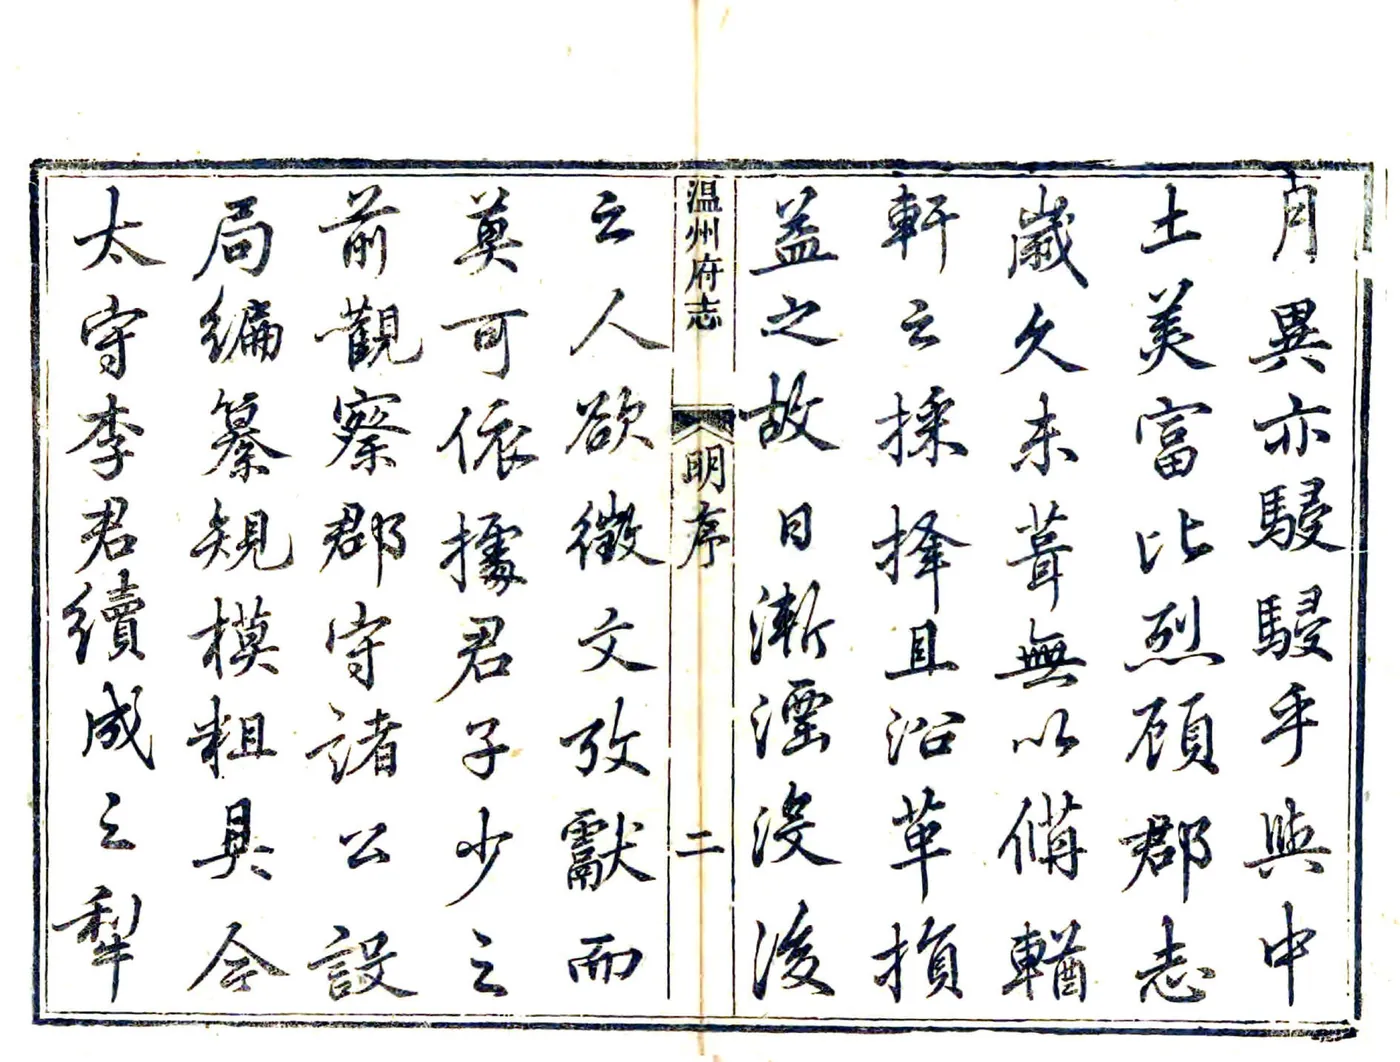 月異亦駸駸乎與中
土美富比烈顧郡志
歲久未葺無以備輶
軒之採擇且沿革損
益之故日漸湮没後
温州府志
明序
二
之人欲徵文攷獻而
莫可依據君子少之
前觀察郡守諸公設
局編纂規模粗具今
太守李君續成之犁